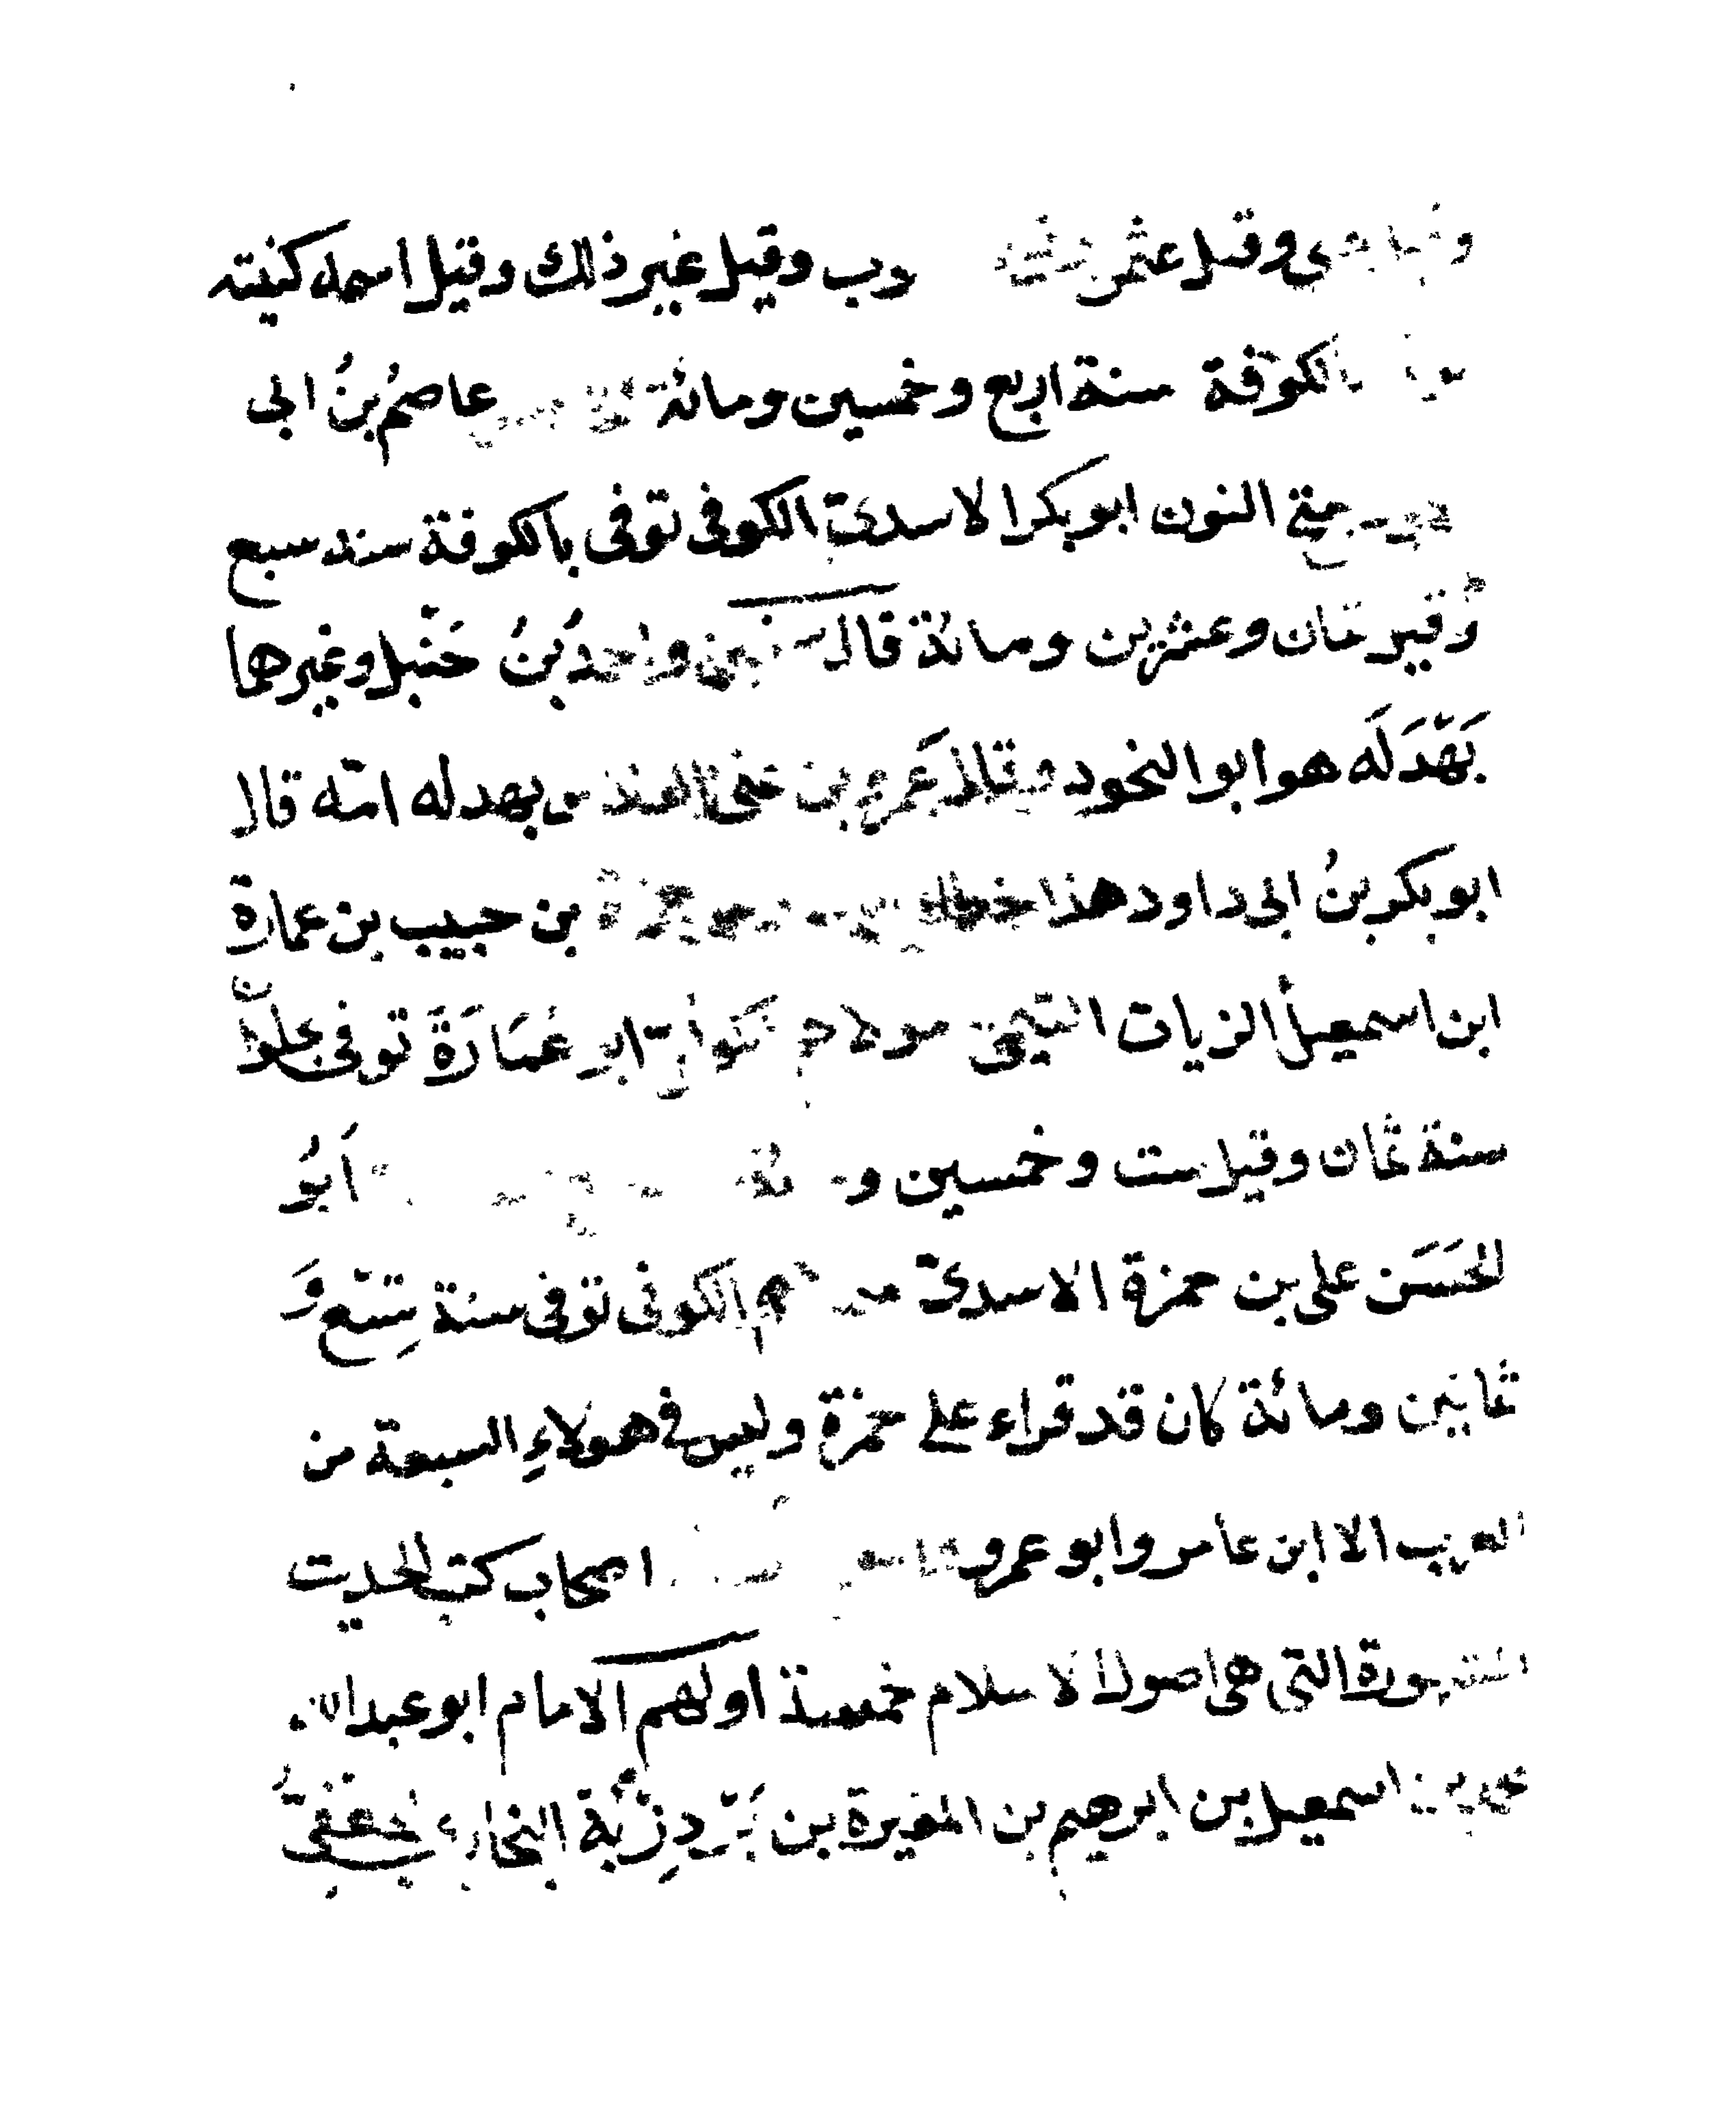 وقيل عثمن وب وقيل غير ذلك وقيل اسمه كنيته
الكوفة سنة اربع وخمسين ومائة عاصمُ بنُ ابى
النون ابو بكر الاسدىّ الكوفى توفى بالكوفة سنه سبع
وقيل ثمان وعشرين ومائة قال واحمدُ بنُ حَنْبل وغيرهما
بَهْدَلَه هو ابو النجود وقال عَمرو بن بهدله امّه قال
ابو بكر بنُ ابى داود هذا خطا حمزة بن حبيب بن عمارة
ابن اسمعيل الزيات التيمىّ مولاهم ابو عُمَارَةَ توفى بحلوان
سنة ثمان وقيل ست وخمسين و اَبُو
الحَسَن على بن حمزة الاسدىّ الكوفى توفى سنة تِسْع وَ
ثمانين ومائة كان قد قراء على حمزة وليس فى هولاءِ السبعة من
العرب الا ابن عامر وابو عمرو اصحاب كتب الحديث
المشهورة التى هى اصول الاسلام خمسة اولهم الامام ابو عبد الله
محمد بن اسمعيل بن ابرهيم بن المغيرة بن بَرْدِزْبَة البخارى الجعفىّ